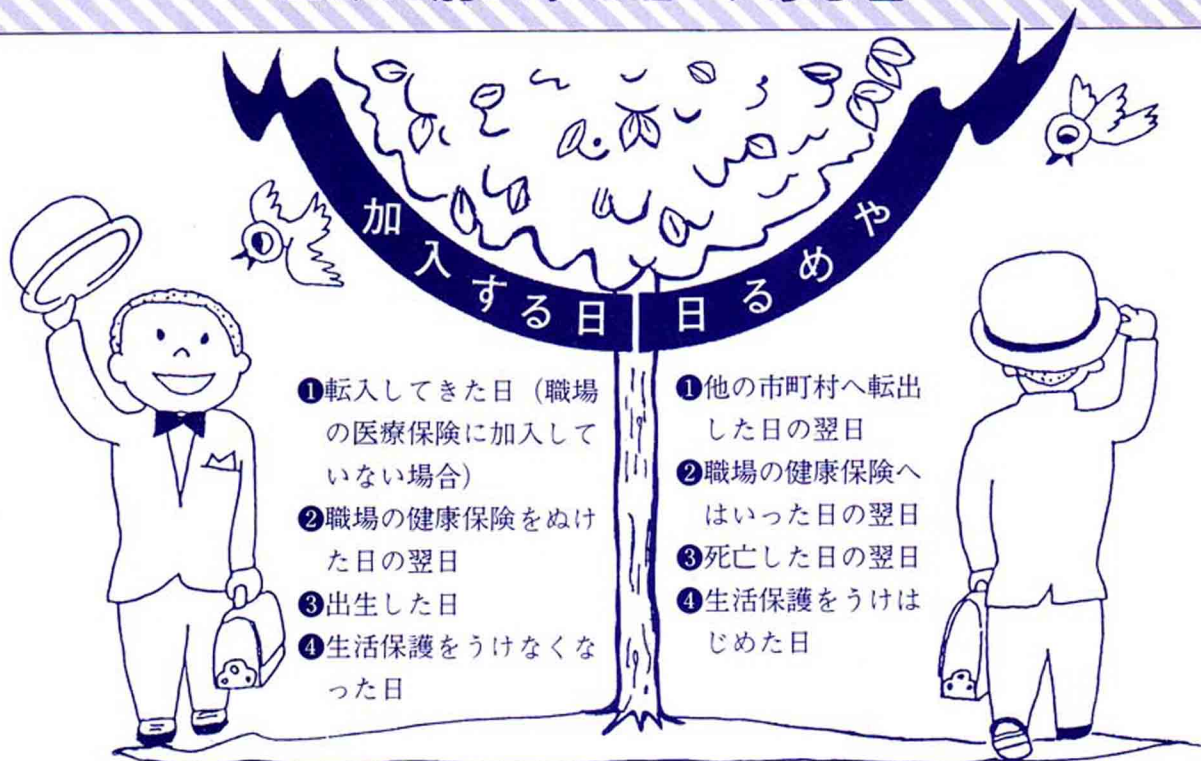 加入する日
❶転入してきた日（職場
の医療保険に加入して
いない場合）
❷職場の健康保険をぬけ
た日の翌日
❸出生した日
❹生活保護をうけなくな
った日
やめる日
❶他の市町村へ転出
した日の翌日
❷職場の健康保険へ
はいった日の翌日
❸死亡した日の翌日
❹生活保護をうけは
じめた日